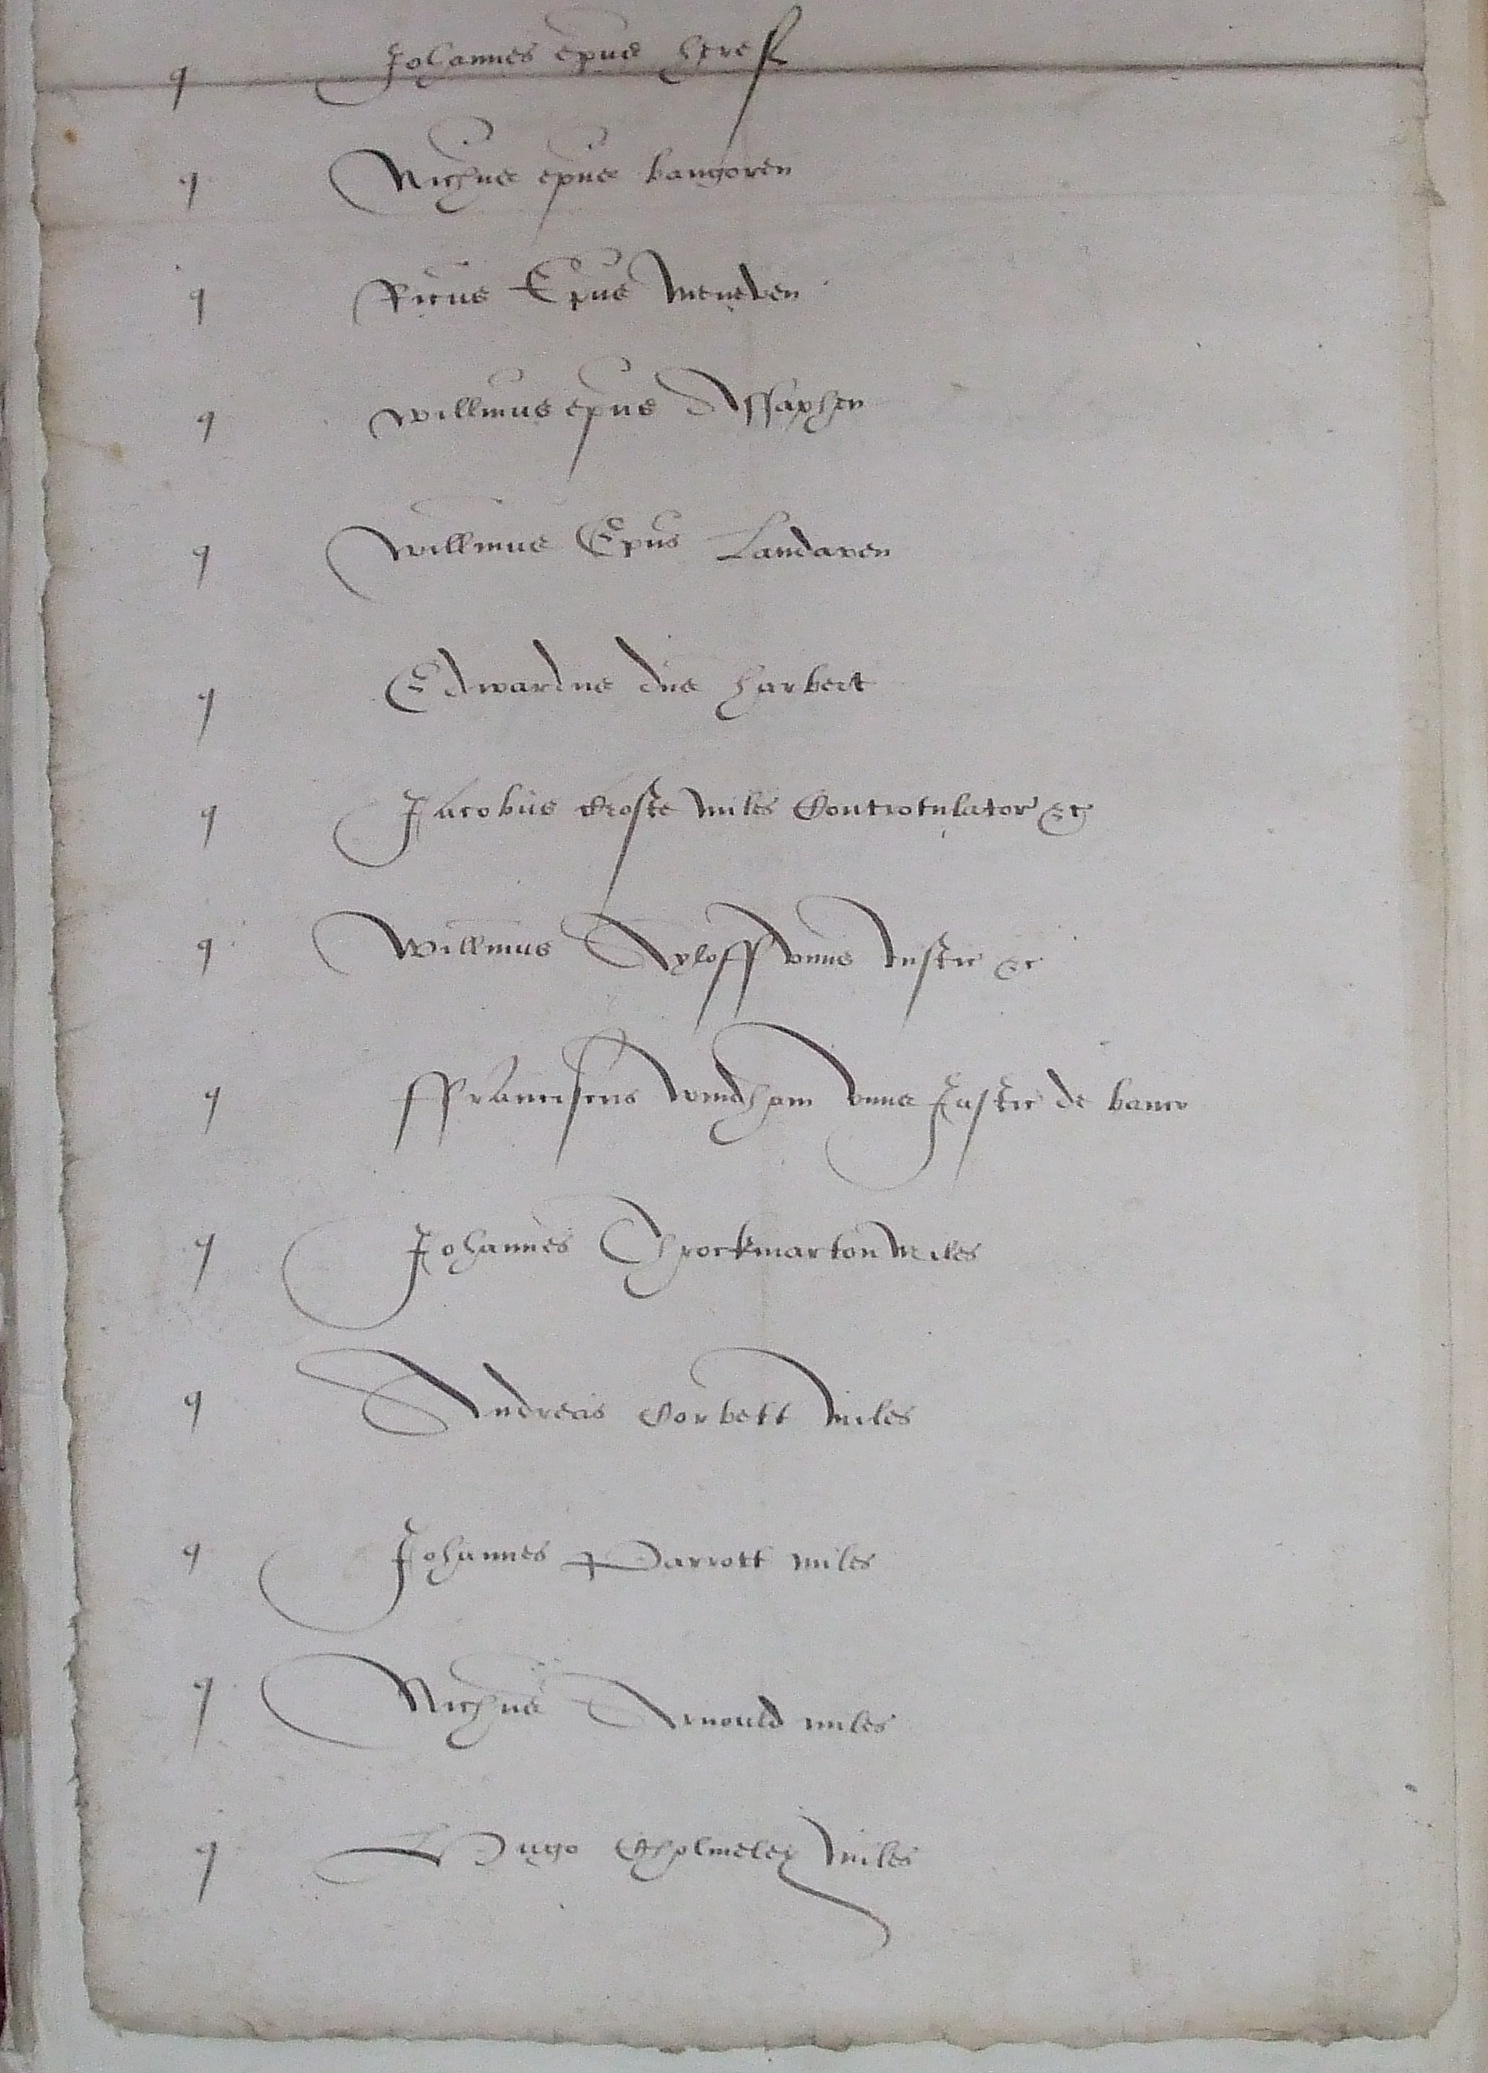 q Johannes epus heref
q Nichus epus bangoren
q Ricus Epus Meneven
q Willmus epus Assaphen
q Willmus Epus Landaven
q Edwardus dns harbert
q Jacobus Crofte miles Controtulator &c
q Willmus Ayloff vnus Justic &c
q ffranciscus Windham vnus Justic de banco
q Johannes Throckmarton Miles
q Andreas Corbett miles
q Johannes Parrott miles
q Nichus Arnould miles
q Hugo Cholmeley miles